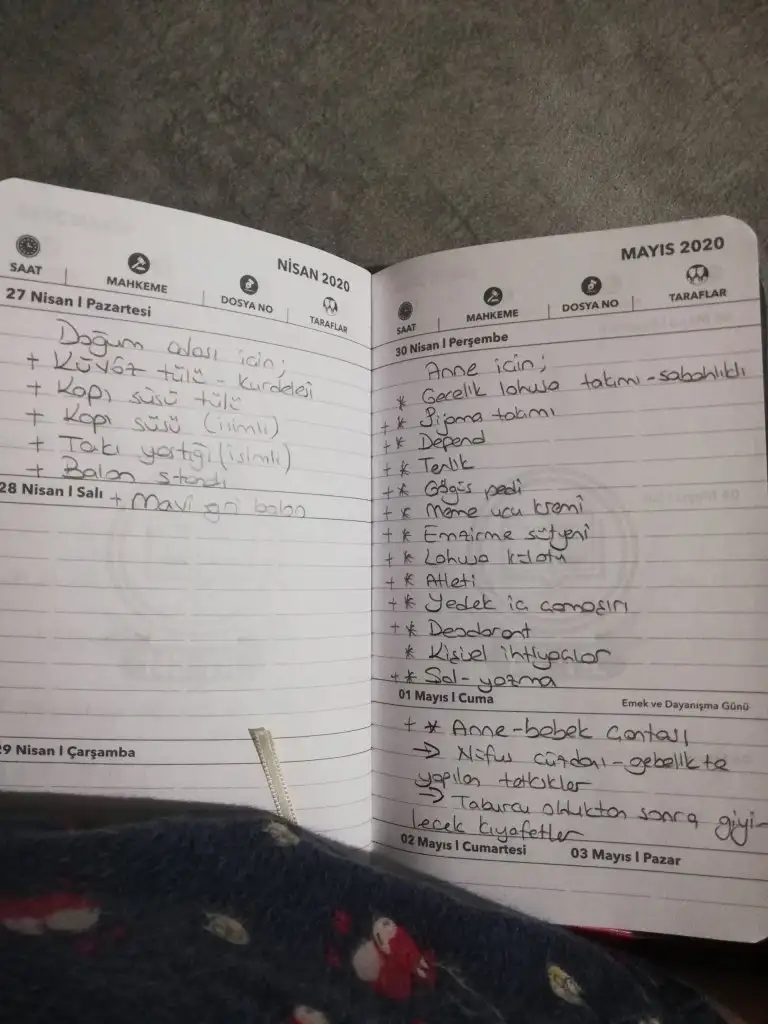 NİSAN 2020
SAAT
MAHKEME
DOSYA NO
TARAFLAR
27 Nisan | Pazartesi
Doğum odası için;
+ Küvöz tülü - kurdelesi
+ Kapı süsü tülü
+ Kapı süsü (isimli)
+ Takı yastığı (isimli)
+ Balon standı
28 Nisan | Salı
+ Mavi gri balon
29 Nisan | Çarşamba
MAYIS 2020
SAAT
MAHKEME
DOSYA NO
TARAFLAR
30 Nisan | Perşembe
Anne için;
* Gecelik lohusa takımı - sabahlıklı
+ * Pijama takımı
+ * Depend
+ * Terlik
+ * Göğüs pedi
+ * Meme ucu kremi
+ * Emzirme sütyeni
+ * Lohusa külotu
+ * Atleti
+ * Yedek iç çamaşırı
+ * Deodorant
* Kişisel ihtiyaçlar
+ * Şal - yazma
01 Mayıs | Cuma
Emek ve Dayanışma Günü
+ * Anne - bebek çantası
→ Nüfus cüzdanı - gebelikte
yapılan tetkikler
→ Taburcu olduktan sonra giyi-
lecek kıyafetler
02 Mayıs | Cumartesi
03 Mayıs | Pazar